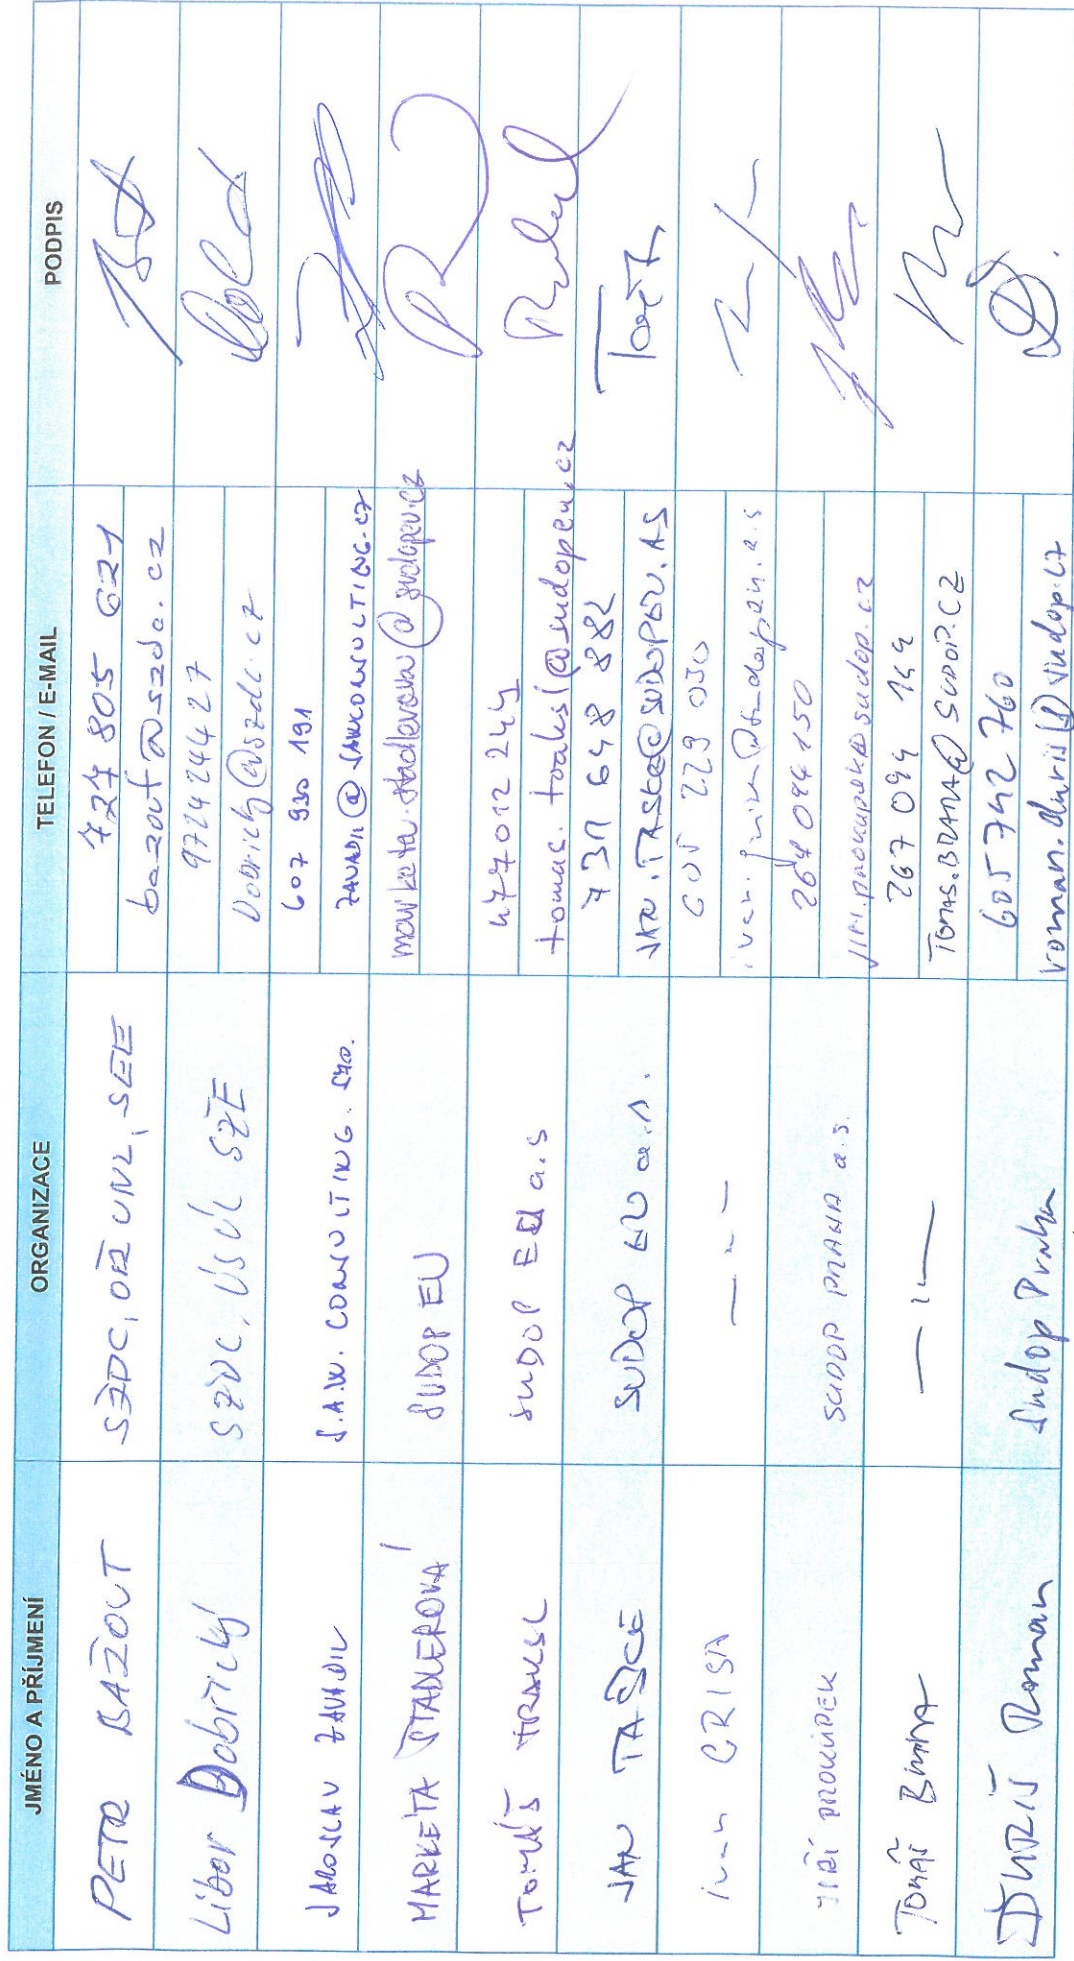 JMÉNO A PŘÍJMENÍ ORGANIZACE TELEFON / E-MAIL PODPIS
PETR BAŽOUT SŽDC, OŘ UNL, SEE 727 805 621
bazout@szdc.cz
Libor Dobřický SŽDC, SŽE 972424427
Dobricky@szdc.cz
JAROSLAV ZAVADIL S.A.W. CONSULTING. S.R.O. 607 930 191
ZAVADIL@SAWCONSULTING.CZ
MARKÉTA STADLEROVÁ SUDOP EU marketa.stadlerova@sudopeu.cz
TOMÁŠ TRAKSL SUDOP EU a.s 477012244
SUDOP EU a.s. 731 648 882
JAN
Ivan 605 229 030
JIŘÍ PROKŮPEK SUDOP PRAHA a.s. 267 094 150
jiri.prokupek@sudop.cz
TOMÁŠ — 11 — 267 094 144
TOMAS.BRABA@SUDOP.CZ
ĎURIŠ Roman Sudop Praha 605 742 760
roman.duris@sudop.cz